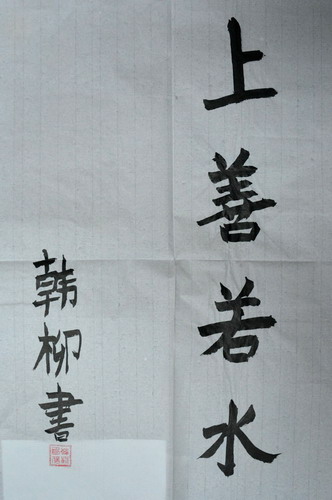 上善若水
韩柳書